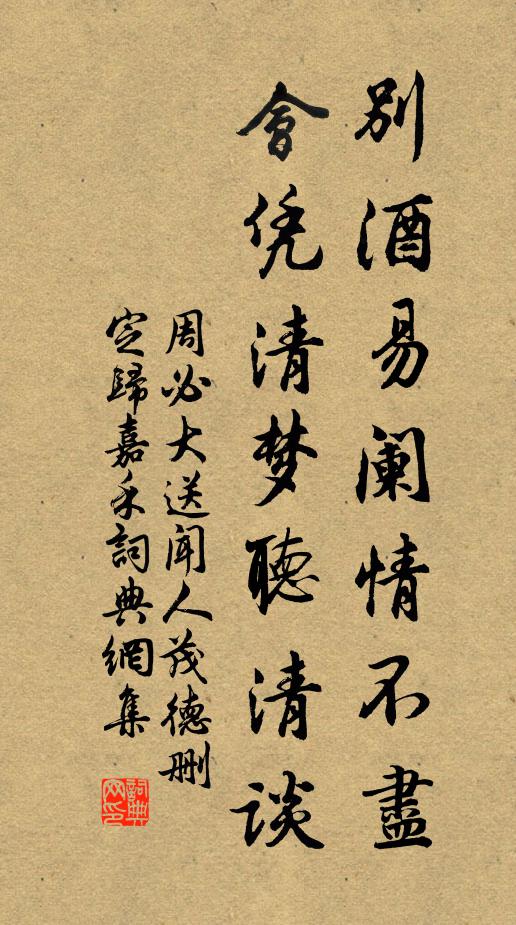 別酒易阑情不盡
會凭清梦聽清談
周必大送闻人茂德删
定歸嘉禾詞典網集
詞典网印